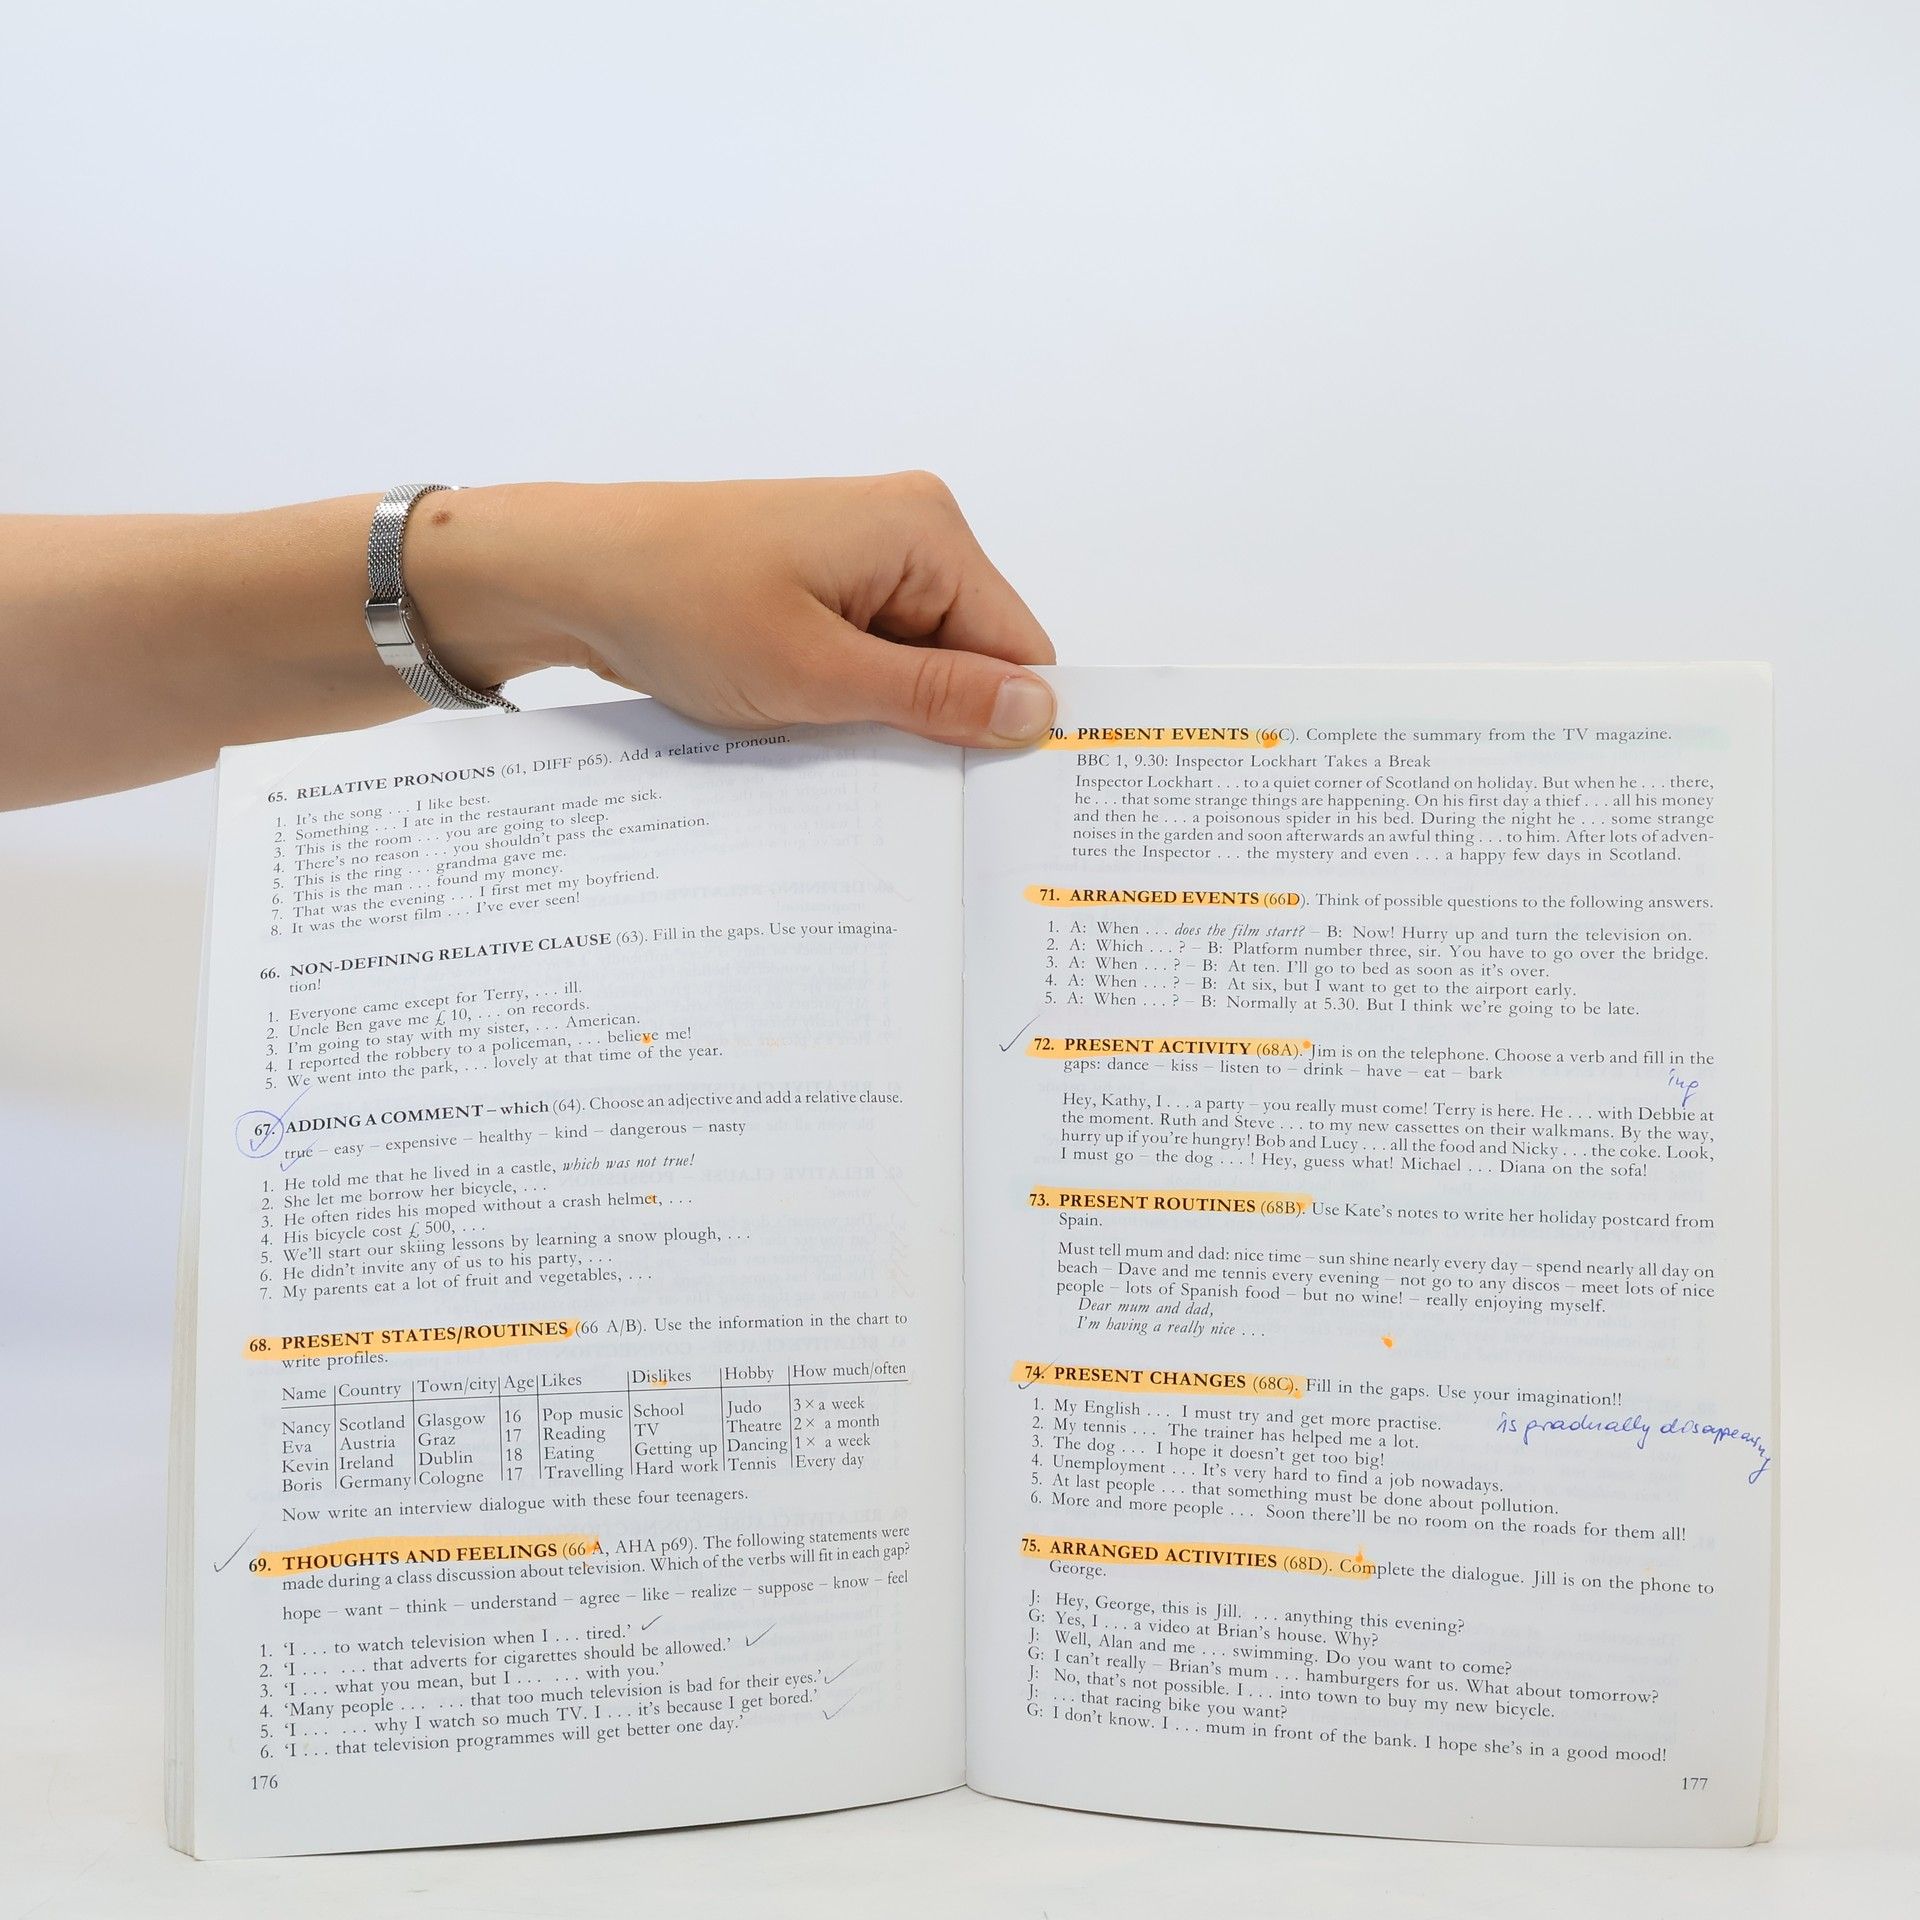 65. RELATIVE PRONOUNS (61, DIFF p65). Add a relative pronoun.
1. It's the song . . . I like best.
2. Something . . . I ate in the restaurant made me sick.
3. This is the room . . . you are going to sleep.
4. There's no reason . . . you shouldn't pass the examination.
5. This is the ring . . . grandma gave me.
6. This is the man . . . found my money.
7. That was the evening . . . I first met my boyfriend.
8. It was the worst film . . . I've ever seen!
66. NON-DEFINING RELATIVE CLAUSE (63). Fill in the gaps. Use your imagina-
tion!
1. Everyone came except for Terry, . . . ill.
2. Uncle Ben gave me £ 10, . . . on records.
3. I'm going to stay with my sister, . . . American.
4. I reported the robbery to a policeman, . . . believe me!
5. We went into the park, . . . lovely at that time of the year.
67. ADDING A COMMENT – which (64). Choose an adjective and add a relative clause.
true – easy – expensive – healthy – kind – dangerous – nasty
1. He told me that he lived in a castle, which was not true!
2. She let me borrow her bicycle, . . .
3. He often rides his moped without a crash helmet, . . .
4. His bicycle cost £ 500, . . .
5. We'll start our skiing lessons by learning a snow plough, . . .
6. He didn't invite any of us to his party, . . .
7. My parents eat a lot of fruit and vegetables, . . .
68. PRESENT STATES/ROUTINES (66 A/B). Use the information in the chart to
write profiles.
Name Country Town/city Age Likes Dislikes Hobby How much/often
Nancy Scotland Glasgow 16 Pop music School Judo 3 × a week
Eva Austria Graz 17 Reading TV Theatre 2 × a month
Kevin Ireland Dublin 18 Eating Getting up Dancing 1 × a week
Boris Germany Cologne 17 Travelling Hard work Tennis Every day
Now write an interview dialogue with these four teenagers.
69. THOUGHTS AND FEELINGS (66 A, AHA p69). The following statements were
made during a class discussion about television. Which of the verbs will fit in each gap?
hope – want – think – understand – agree – like – realize – suppose – know – feel
1. 'I . . . to watch television when I . . . tired.'
2. 'I . . . . . . that adverts for cigarettes should be allowed.'
3. 'I . . . what you mean, but I . . . . . . with you.'
4. 'Many people . . . . . . that too much television is bad for their eyes.'
5. 'I . . . . . . why I watch so much TV. I . . . it's because I get bored.'
6. 'I . . . that television programmes will get better one day.'
176
70. PRESENT EVENTS (66C). Complete the summary from the TV magazine.
BBC 1, 9.30: Inspector Lockhart Takes a Break
Inspector Lockhart . . . to a quiet corner of Scotland on holiday. But when he . . . there,
he . . . that some strange things are happening. On his first day a thief . . . all his money
and then he . . . a poisonous spider in his bed. During the night he . . . some strange
noises in the garden and soon afterwards an awful thing . . . to him. After lots of adven-
tures the Inspector . . . the mystery and even . . . a happy few days in Scotland.
71. ARRANGED EVENTS (66D). Think of possible questions to the following answers.
1. A: When . . . does the film start? – B: Now! Hurry up and turn the television on.
2. A: Which . . . ? – B: Platform number three, sir. You have to go over the bridge.
3. A: When . . . ? – B: At ten. I'll go to bed as soon as it's over.
4. A: When . . . ? – B: At six, but I want to get to the airport early.
5. A: When . . . ? – B: Normally at 5.30. But I think we're going to be late.
72. PRESENT ACTIVITY (68A). Jim is on the telephone. Choose a verb and fill in the
gaps: dance – kiss – listen to – drink – have – eat – bark
ing
Hey, Kathy, I . . . a party – you really must come! Terry is here. He . . . with Debbie at
the moment. Ruth and Steve . . . to my new cassettes on their walkmans. By the way,
hurry up if you're hungry! Bob and Lucy . . . all the food and Nicky . . . the coke. Look,
I must go – the dog . . . ! Hey, guess what! Michael . . . Diana on the sofa!
73. PRESENT ROUTINES (68B). Use Kate's notes to write her holiday postcard from
Spain.
Must tell mum and dad: nice time – sun shine nearly every day – spend nearly all day on
beach – Dave and me tennis every evening – not go to any discos – meet lots of nice
people – lots of Spanish food – but no wine! – really enjoying myself.
Dear mum and dad,
I'm having a really nice . . .
74. PRESENT CHANGES (68C). Fill in the gaps. Use your imagination!!
1. My English . . . I must try and get more practise.
is gradually disappearing
2. My tennis . . . The trainer has helped me a lot.
3. The dog . . . I hope it doesn't get too big!
4. Unemployment . . . It's very hard to find a job nowadays.
5. At last people . . . that something must be done about pollution.
6. More and more people . . . Soon there'll be no room on the roads for them all!
75. ARRANGED ACTIVITIES (68D). Complete the dialogue. Jill is on the phone to
George.
J: Hey, George, this is Jill. . . . anything this evening?
G: Yes, I . . . a video at Brian's house. Why?
J: Well, Alan and me . . . swimming. Do you want to come?
G: I can't really – Brian's mum . . . hamburgers for us. What about tomorrow?
J: No, that's not possible. I . . . into town to buy my new bicycle.
J: . . . that racing bike you want?
G: I don't know. I . . . mum in front of the bank. I hope she's in a good mood!
177